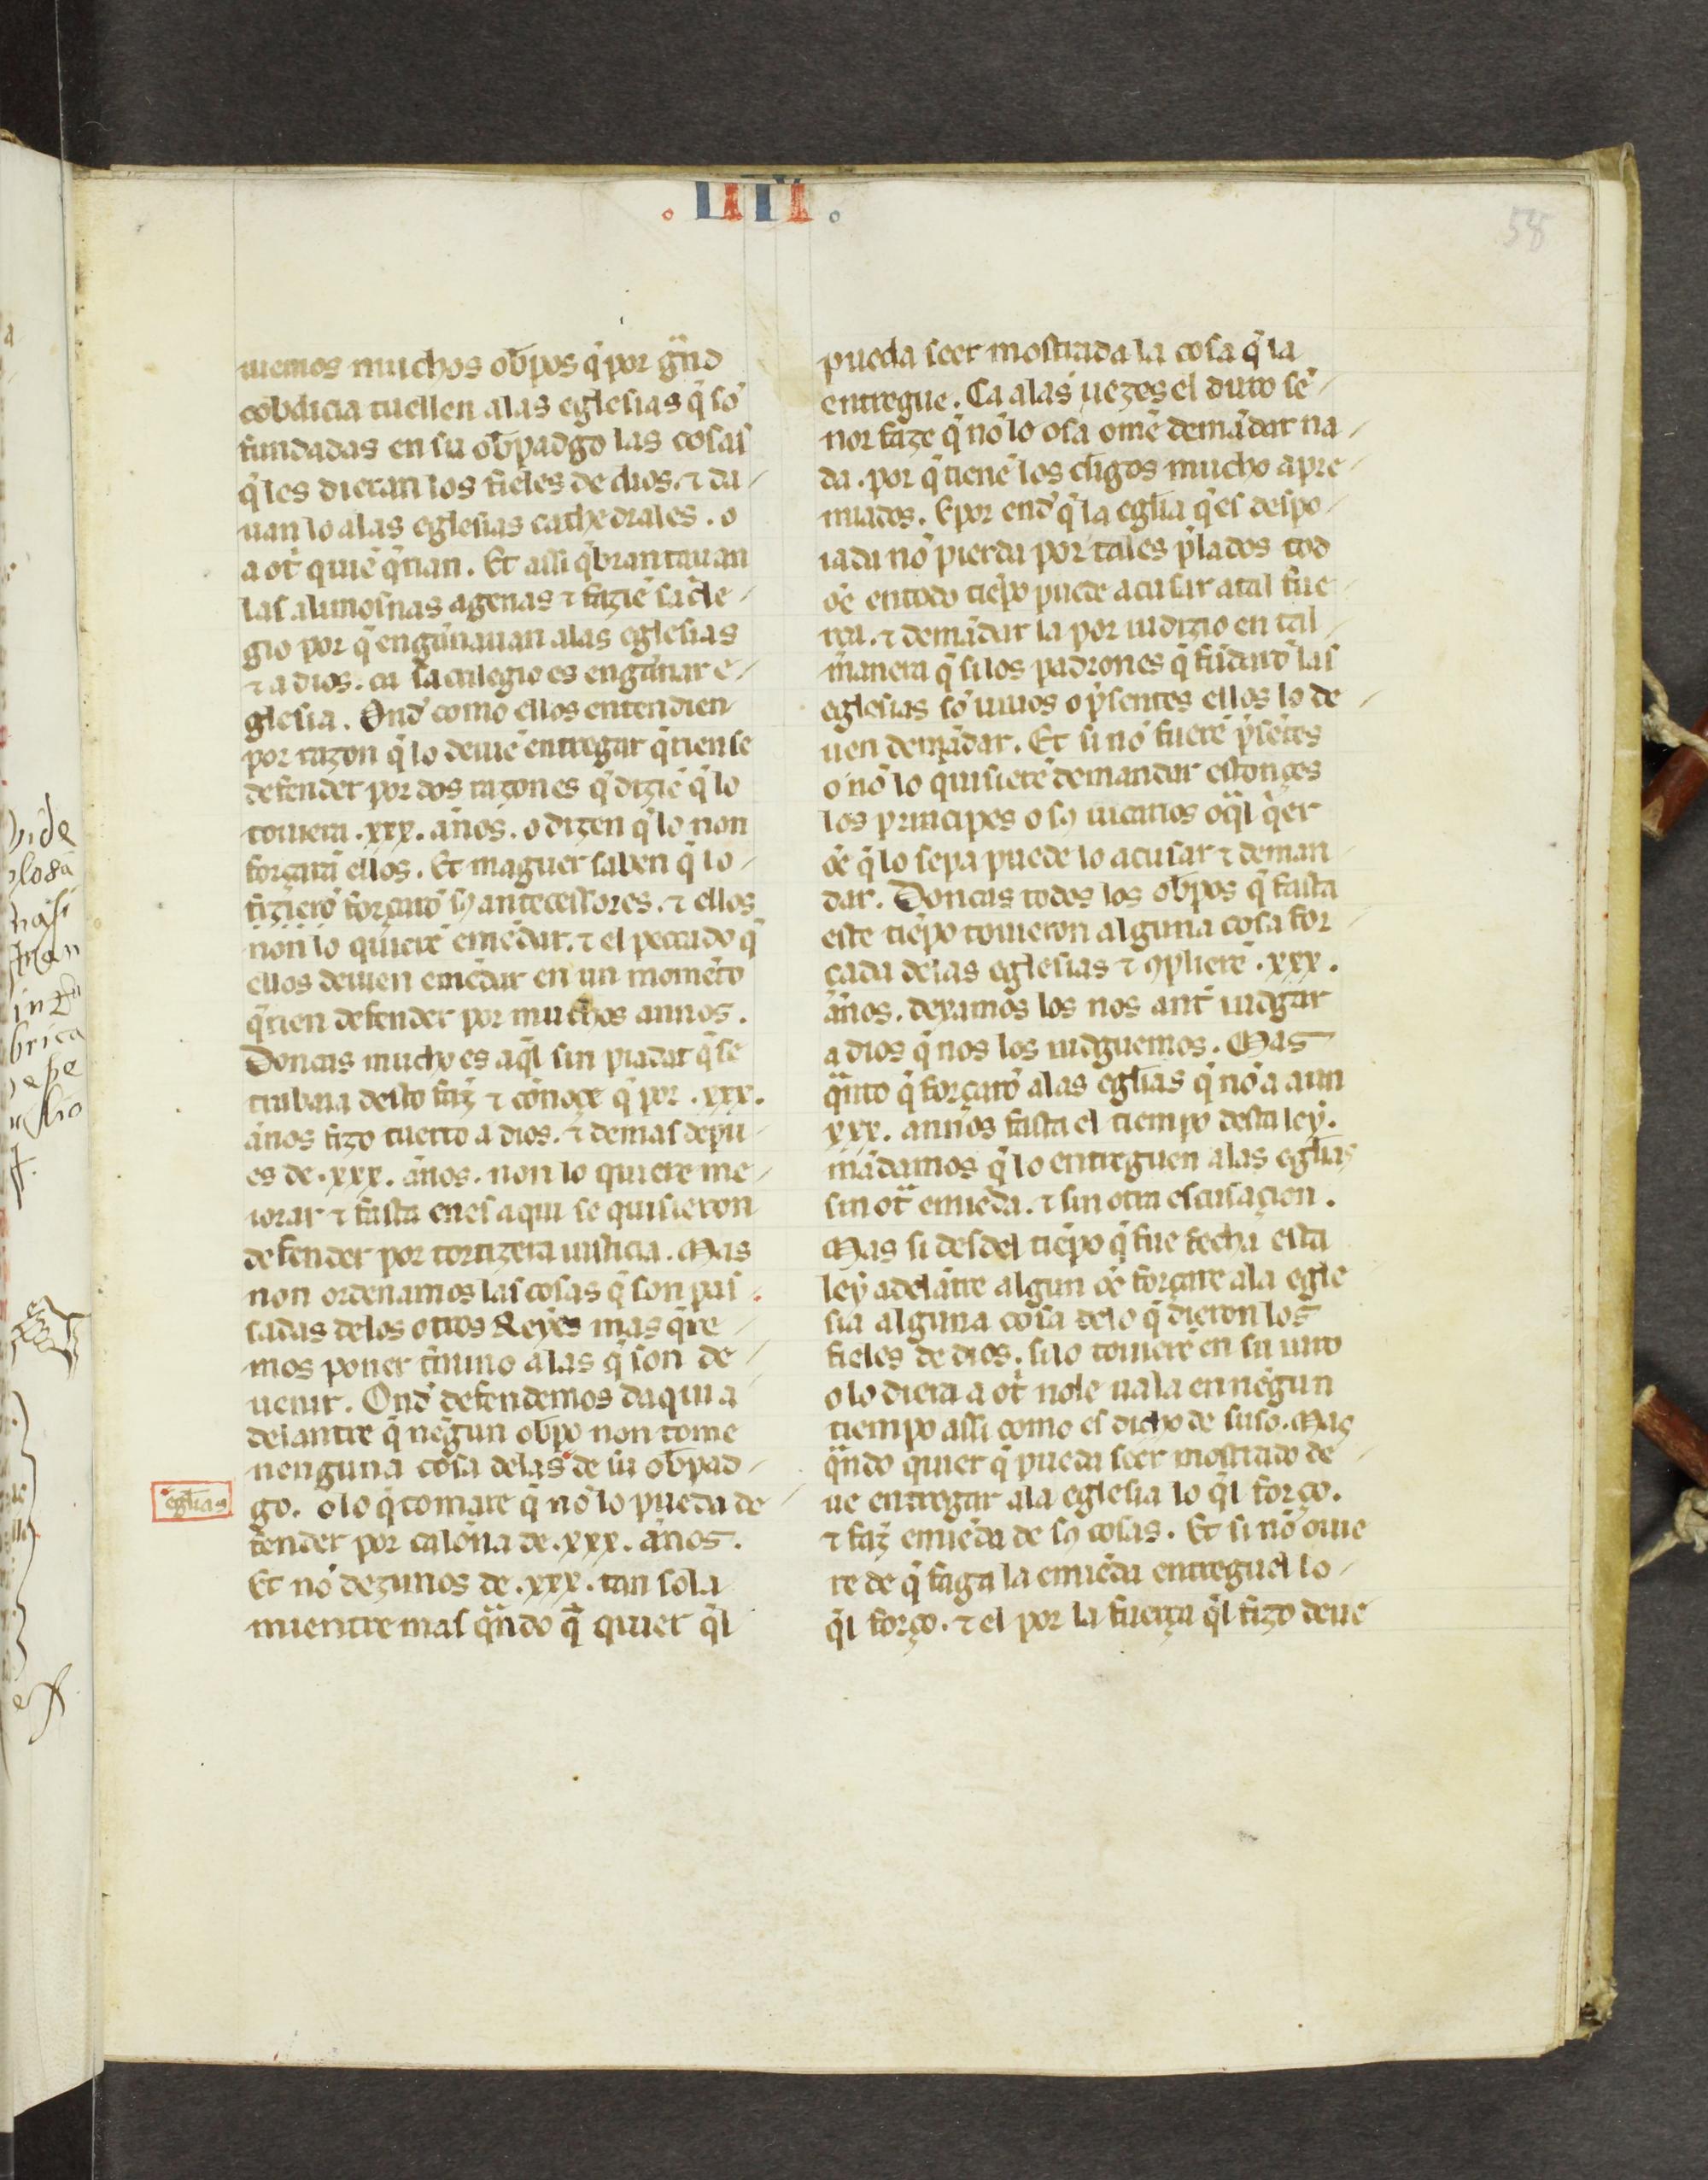 . IIII .
58
uiemos muchos obpos q̄ por gͣnd
cobdicia tuellen alas eglesias q̄ sō
fundadas en su obpadgo las cosas
q̄ les dieran los fieles de dios. ⁊ da
uan lo alas eglesias cathedrales. o
a ot̄ quiē q̄rian. Et assi q̄brantauan
las alimosnas agenas ⁊ faziē sacͥle
gio por q̄ engannauan alas eglesias
⁊ a dios. ca sacrilegio es engānar e
glesia. Ond̄ como ellos entendien
por razon q̄ lo deuiē entregar q̄rien se
defender por dos razones q̄ diziē q̄ lo
touiera .xxx. ānos. o dizen q̄ lo non
forçarā ellos. Et maguer saben q̄ lo
fizierō forçarō sꝯ antecessores. ⁊ ellos
non lo quierē emēdar. ⁊ el peccado q̄
ellos deuien emēdar en un momēto
q̄rien defender por muchos annos.
Doncas mucho es aq̄l sin piadat q̄ se
trabaia desto faz̄ ⁊ cōnoçe q̄ por .xxx.
ānos fizo tuerto a dios. ⁊ demas depu
es de .xxx. ānos. non lo quiere me
iorar ⁊ fasta enes aqui se quisieron
defender por tortizera iusticia. Mas
non ordenamos las cosas q̄ son pas
sadas delos otros Reyes mas q̄re
mos poner t̄mino alas q̄ son de
uenir. Ond̄ defendemos daqui a
delantre q̄ negun obpo non tome
nenguna cosa delas de su obpad
eglias
go. o lo q̄ tomare q̄ nō lo pueda de
fender por calōna de .xxx. ānos.
Et nō dezimos de .xxx. tan sola
mientre mas qͣndo q̄ quier q̄l
pueda seer mostrada la cosa q̄ la
entregue. Ca alas uezes el duro sē
nor faze q̄ nō lo osa omē demādar na
da. por q̄ tienē los cl̄igos mucho apre
miados. E por end̄ q̄ la eglia q̄ es despo
iada nō pierda por tales p̄lados tod
oē en todo tiēpo puede acusar atal fue
rça. ⁊ demādar la por iudizio en tal
manera q̄ si los padrones q̄ fūdarō las
eglesias sō uiuos o p̄sentes ellos lo de
uen demādar. Et si nō fuerē p̄sētes
o nō lo quisierē demandar estonçes
los principes o sꝯ uicarios o qͣl q̄er
oē q̄ lo sepa puede lo acusar ⁊ deman
dar. Doncas todos los obpos q̄ fasta
este tiēpo touieron alguna cosa for
çada delas eglesias ⁊ ꝯplierē .xxx.
ānos. dexamos los nos ant̄ iudgar
a dios q̄ nos los iudguemos. Mas
qͣnto q̄ forçarō alas eglias q̄ nō a aun
xxx. annos fasta el tiempo desta ley.
mādamos q̄ lo entreguen alas eglias
sin ot̄ emiēda. ⁊ sin otra escusaçion.
Mas si desdel tiēpo q̄ fue fecha esta
ley adelātre algun oē forçare ala egle
sia alguna cosa delo q̄ dieron los
fieles de dios. si lo touierē en su iuro
o lo diera a ot̄ nole uala en nēgun
tiempo assi como es dicho de suso. Mas
qͣndo quier q̄ pueda seer mostrado de
ue entregar ala eglesia lo q̄l forço.
⁊ faz̄ emiēda de sꝯ cosas. Et si nō ouie
re de q̄ faga la emiēda entreguel lo
q̄l forço. ⁊ el por la fuerça q̄l fizo deue